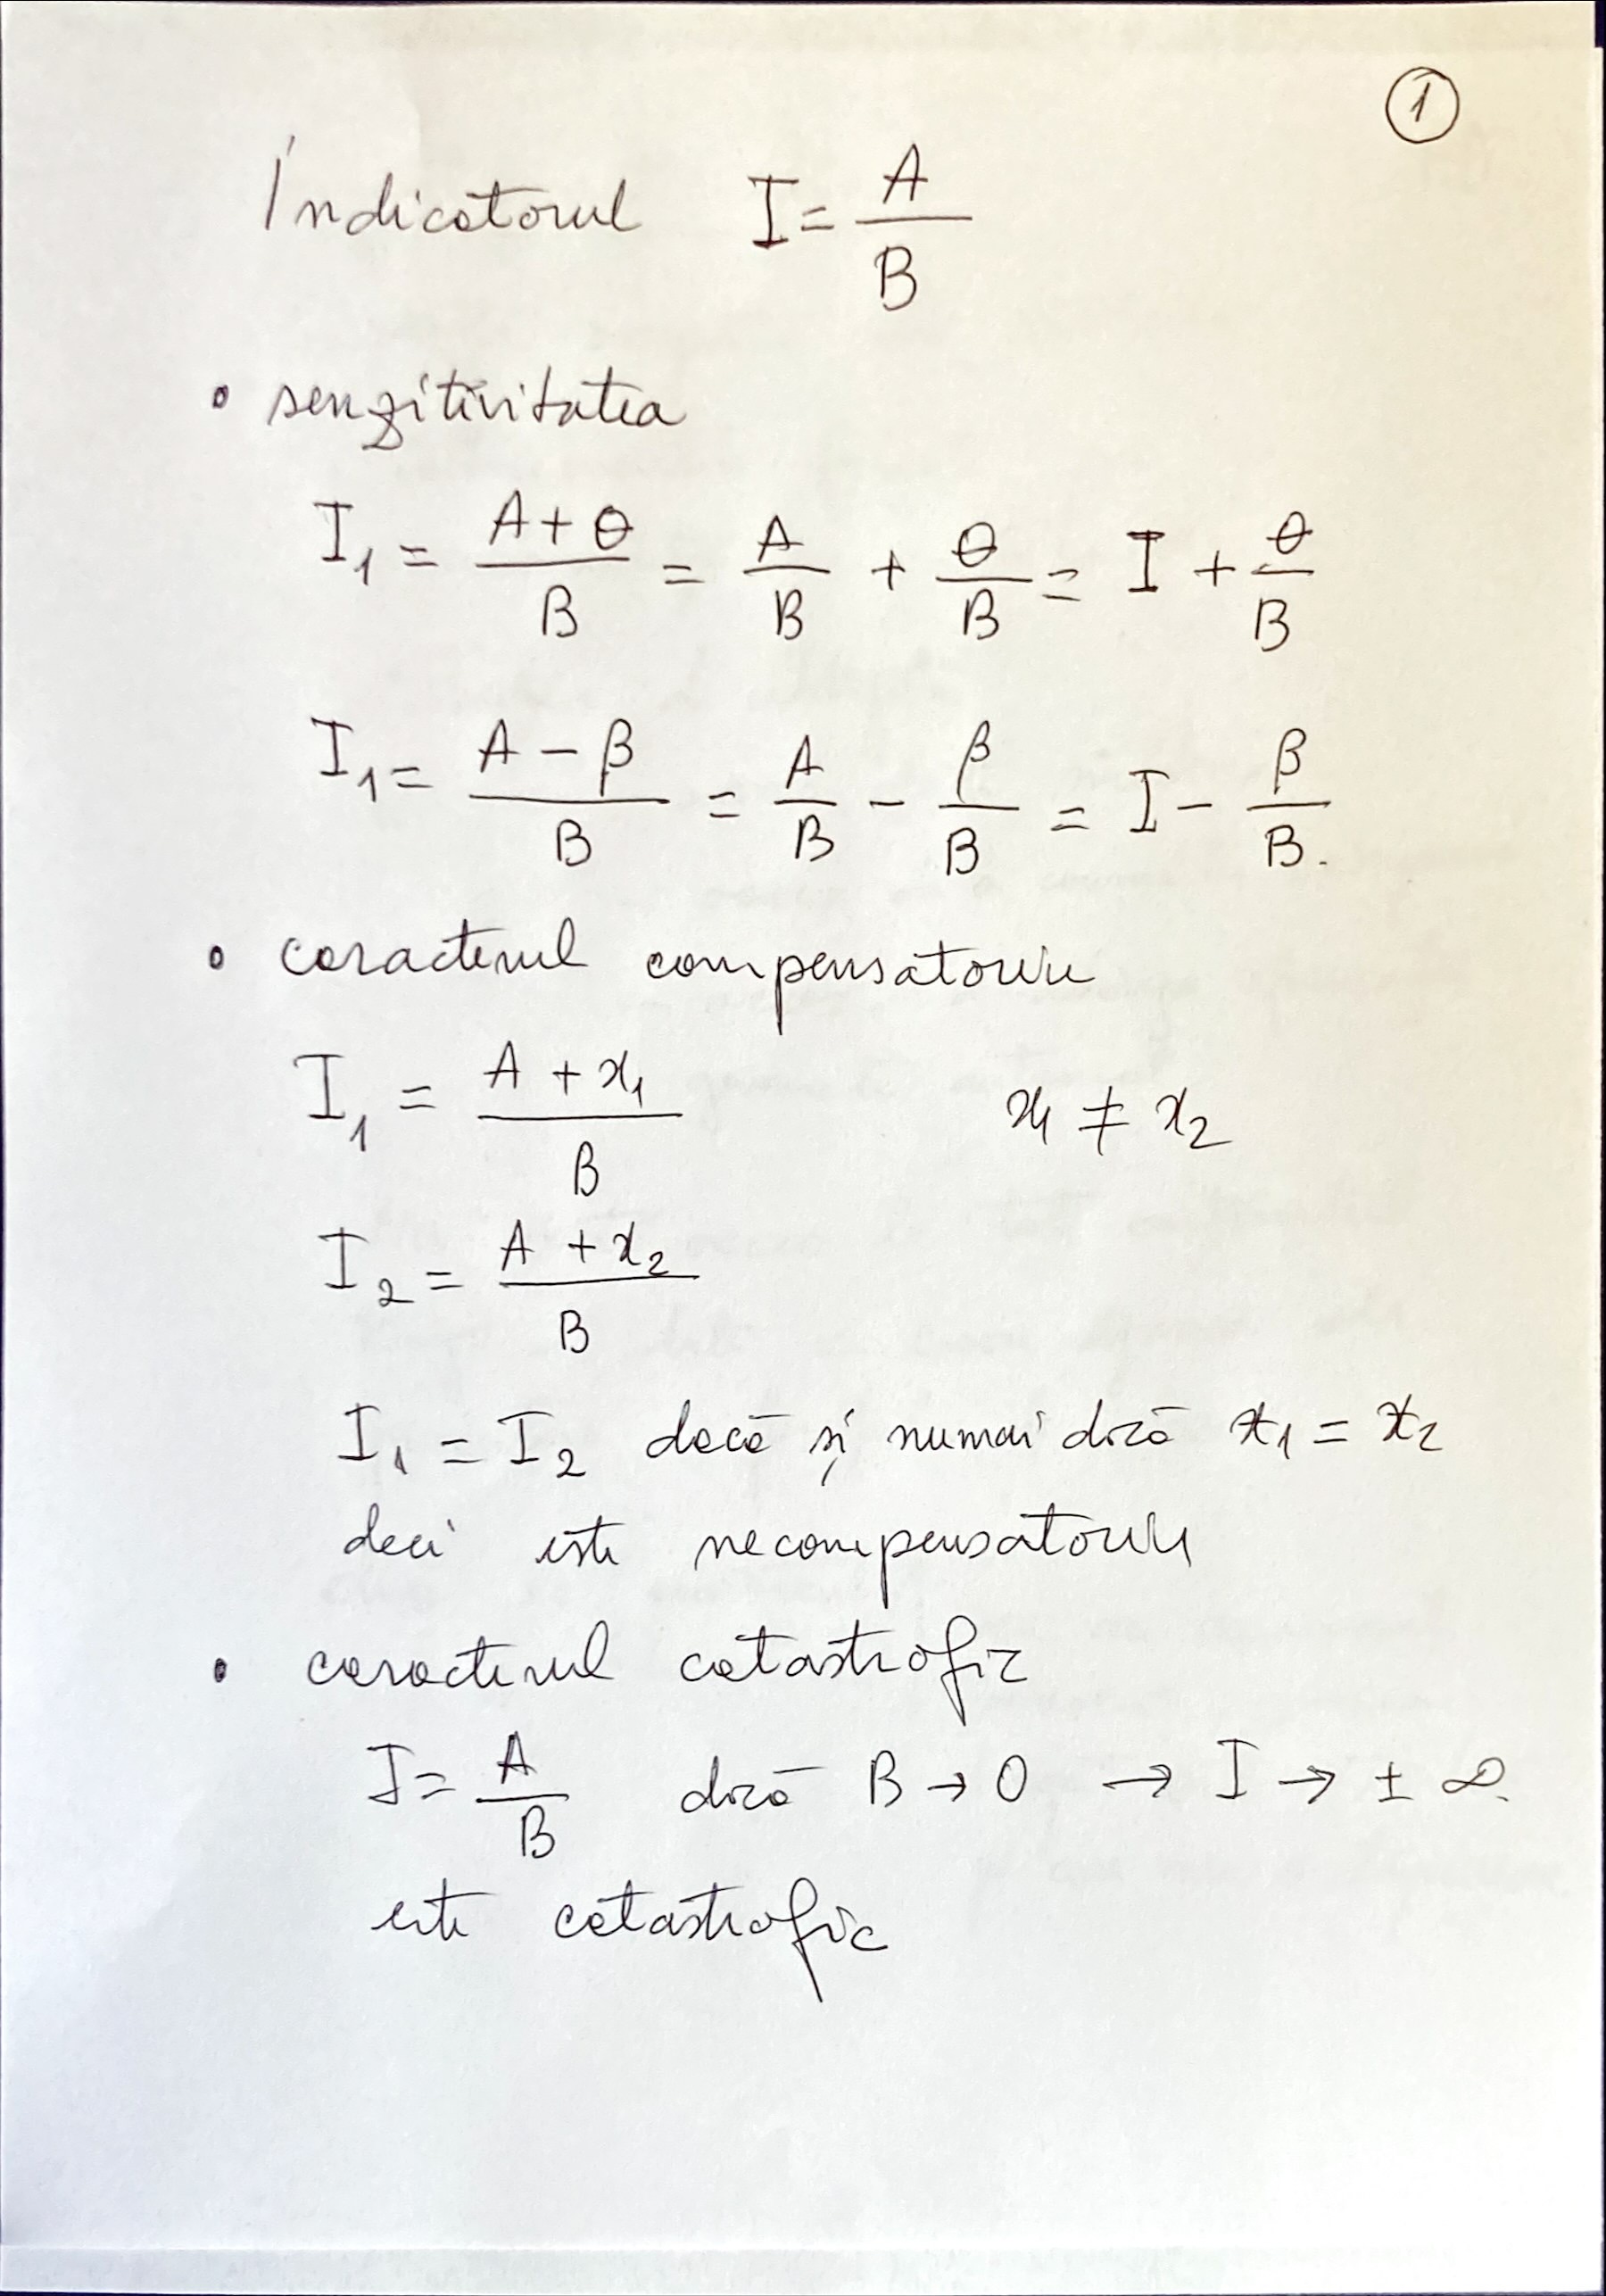 1
Indicatorul I = A/B
• senzitivitatea
I₁ = (A + θ)/B = A/B + θ/B = I + θ/B
I₁ = (A − β)/B = A/B − β/B = I − β/B.
• caracterul compensatoriu
I₁ = (A + x₁)/B x₁ ≠ x₂
I₂ = (A + x₂)/B
I₁ = I₂ dacă și numai dacă x₁ = x₂
deci este necompensatoriu
• caracterul catastrofic
I = A/B dacă B → 0 → I → ± ∞.
este catastrofic